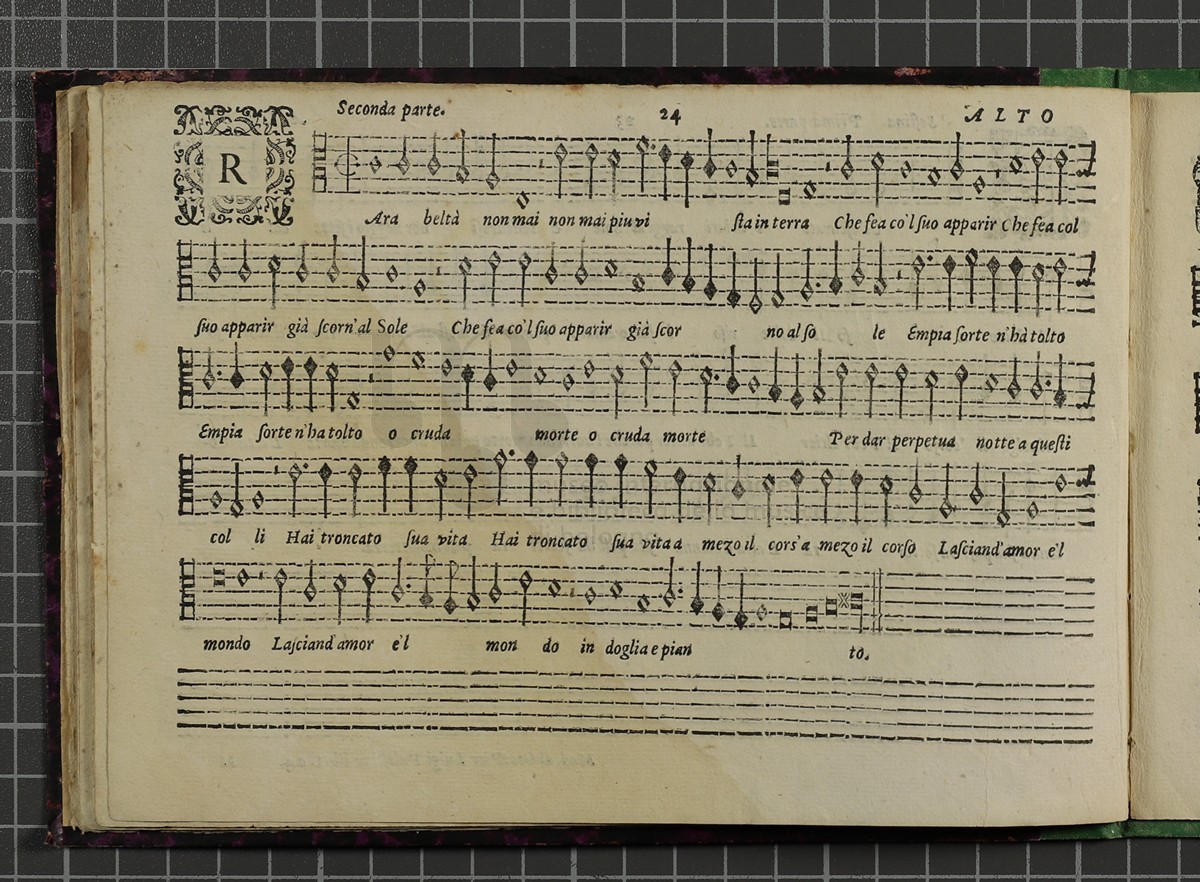 Seconda parte. 24 ALTO
R
Ara beltà non mai non mai piu vi sta in terra Che fea co'l suo apparir Che fea col
suo apparir già scorn'al Sole Che fea co'l suo apparir già scor no al so le Empia sorte n'hà tolto
Empia sorte n'ha tolto o cruda morte o cruda morte Per dar perpetua notte a questi
col li Hai troncato sua vita Hai troncato sua vita a mezo il cors'a mezo il corso Lasciand'amor e'l
mondo Lasciand'amor e'l mon do in doglia e pian to.